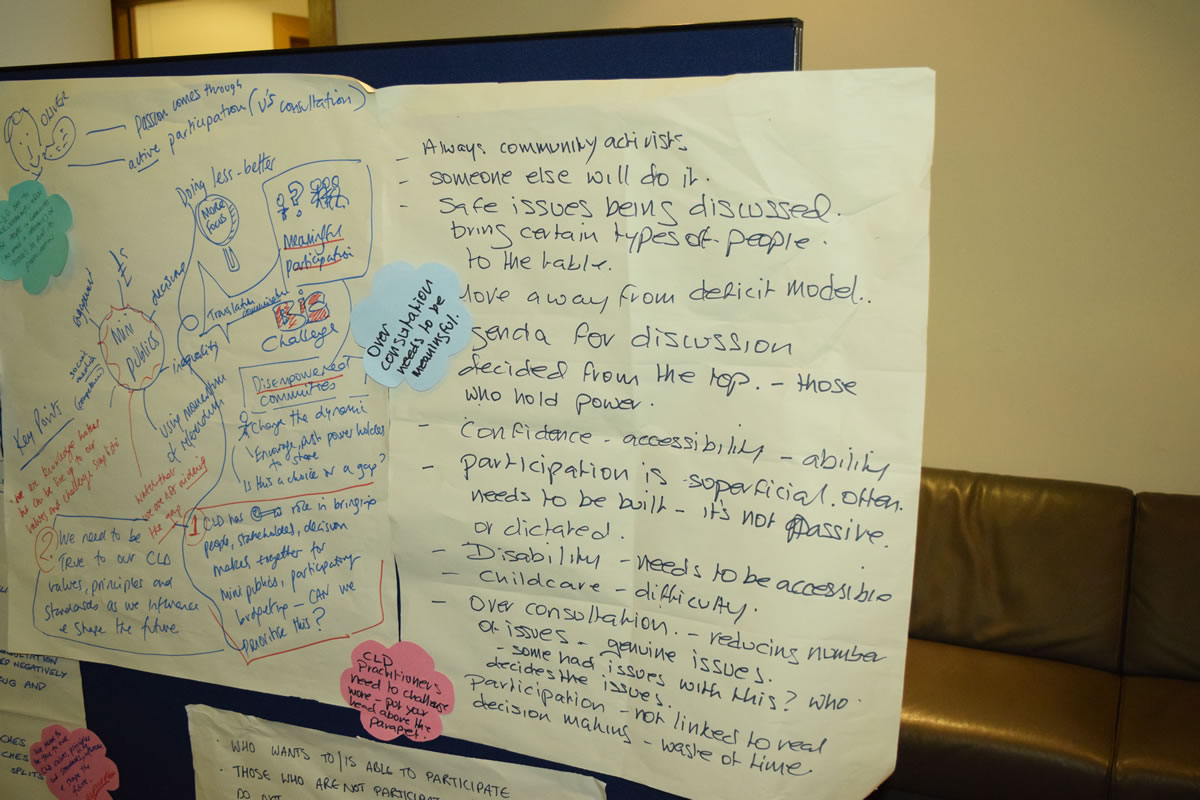 OLIVER
Passion comes through
active participation (v's consultation)
Doing less - better
More
Focus
Meaningful
participation
decisions
Translation
inequality
Mini
publics
social
media
BIG
Challenge
Disempowered
communities
Change the dynamic
Encourage, push power holders
to share
Is this a choice or a gap?
using momentum
of referendum
Key Points
we are not widening
the gap
2. We need to be
True to our CLD
values, principles and
standards as we influence
& shape the future
1 CLD has role in bringing
people, stakeholders, decision
makers together for
mini publics, participatory
budgeting - CAN we
prioritise this?
Over
consultation
needs to be
meaningful.
- Always community activists
- someone else will do it.
- safe issues being discussed.
bring certain types of people.
to the table.
move away from deficit model..
genda for discussion
decided from the top. - those
who hold power.
- Confidence - accessibility - ability
- participation is superficial. often.
needs to be built - it's not passive.
or dictated.
- Disability - needs to be accessible
- childcare - difficulty.
- Over consultation. - reducing number
of issues - genuine issues.
- some had issues with this? who
decides the issues.
participation - not linked to real
decision making - waste of time.
CLD
Practitioners
need to challenge
more - put your
head above the
parapet.
· WHO WANTS TO/IS ABLE TO PARTICIPATE
· THOSE WHO ARE NOT PARTICIPA
DO NOT
NEGATIVELY
AND
SPLITS